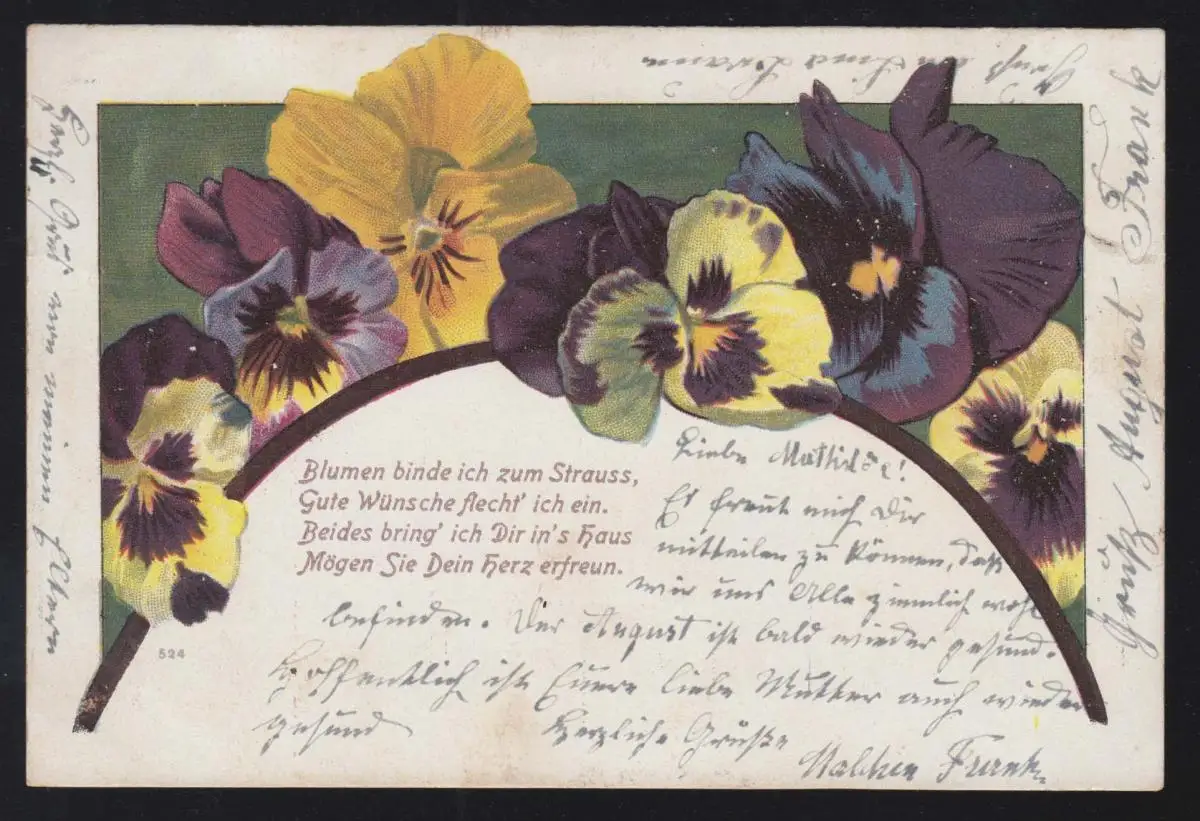 Blumen binde ich zum Strauss,
Gute Wünsche flecht' ich ein.
Beides bring' ich Dir in's Haus
Mögen Sie Dein Herz erfreun.
524
Liebe Mathilde!
Es freut mich Dir
mitteilen zu können, daß
wir uns Alle ziemlich wohl
befinden. Der August ist bald wieder gesund.
Hoffentlich ist Euere liebe Mutter auch wieder
gesund
Herzliche Grüße
Malchen Frank.
Gruß August Frank
Gruß an
Herzl. Gruß von meinen l. Eltern